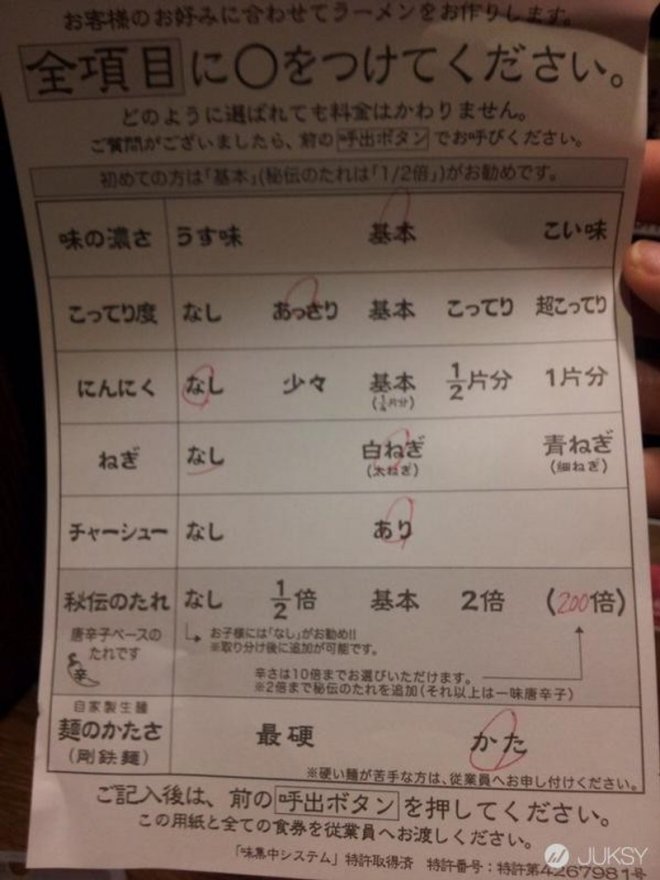 お客様のお好みに合わせてラーメンをお作りします。
全項目に〇をつけてください。
どのように選ばれても料金はかわりません。
ご質問がございましたら、前の呼出ボタンでお呼びください。
初めての方は「基本」(秘伝のたれは「1/2倍」)がお勧めです。
味の濃さ うす味 基本 こい味
こってり度 なし あっさり 基本 こってり 超こってり
にんにく なし 少々 基本 1/2片分 1片分
(1/4片分)
ねぎ なし 白ねぎ 青ねぎ
(太ねぎ) (細ねぎ)
チャーシュー なし あり
秘伝のたれ なし 1/2倍 基本 2倍 (200倍)
唐辛子ベースの
たれです
辛
お子様には「なし」がお勧め!!
※取り分け後に追加が可能です。
辛さは10倍までお選びいただけます。
※2倍まで秘伝のたれを追加(それ以上は一味唐辛子)
自家製生麺
麺のかたさ 最硬 かた
(剛鉄麺)
※硬い麺が苦手な方は、従業員へお申し付けください。
ご記入後は、前の呼出ボタンを押してください。
この用紙と全ての食券を従業員へお渡しください。
「味集中システム」特許取得済 特許番号:特許第4267981号
JUKSY